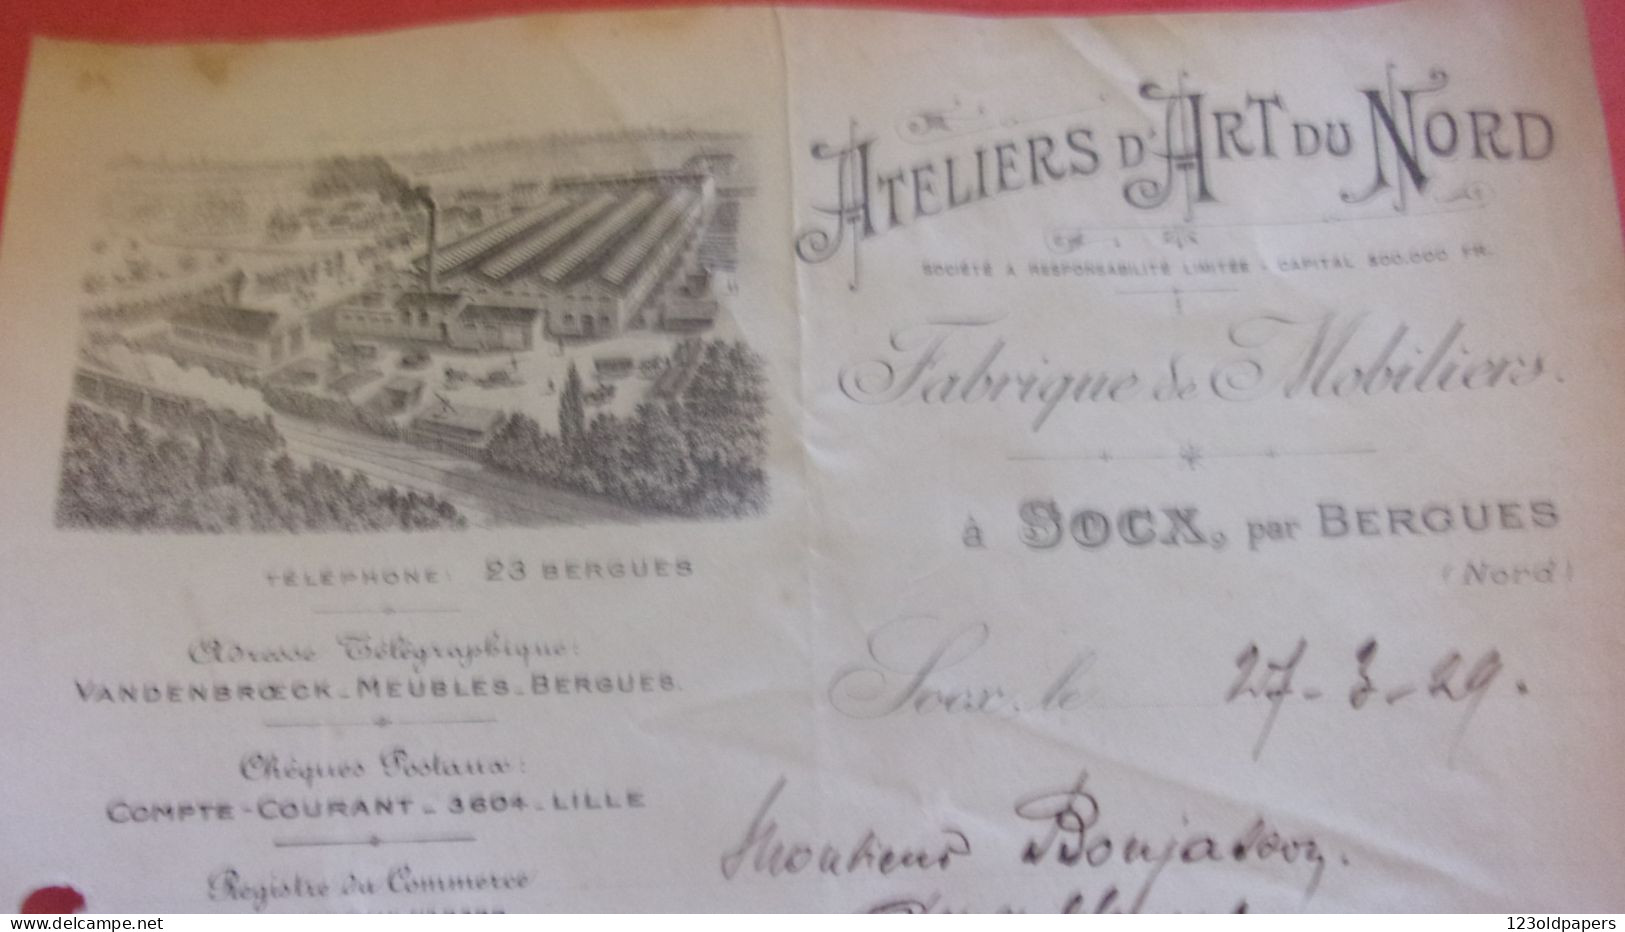 ATELIERS D'ART DU NORD
SOCIÉTÉ À RESPONSABILITÉ LIMITÉE - CAPITAL 800.000 FR.
Fabrique de Mobiliers.
à SOCX, par BERGUES
(Nord)
TÉLÉPHONE: 23 BERGUES
Adresse Télégraphique:
VANDENBRŒCK-MEUBLES-BERGUES.
Chèques Postaux:
COMPTE-COURANT-3604-LILLE
Registre du Commerce
Socx, le 27-3-29.
Monsieur
123oldpapers